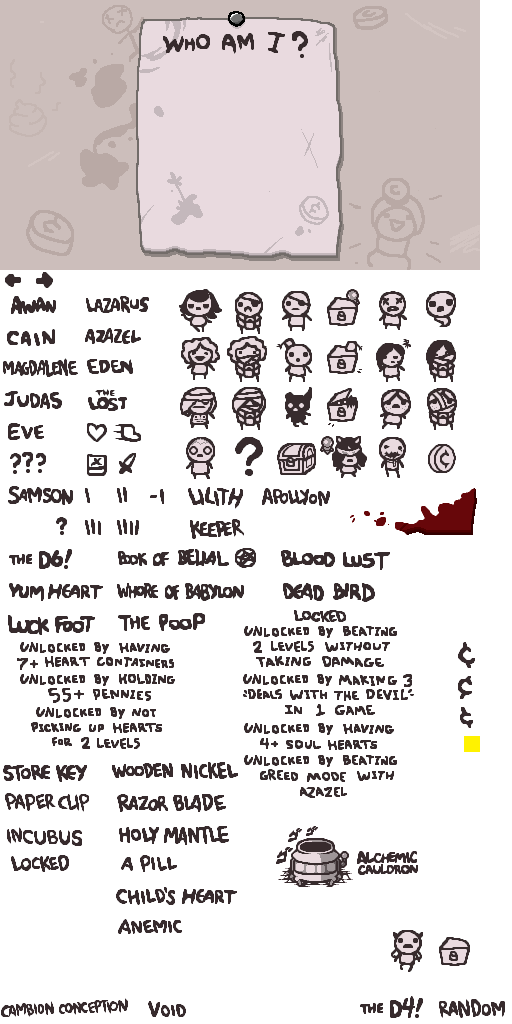 WHO AM I?
AWAN LAZARUS
CAIN AZAZEL
MAGDALENE EDEN
JUDAS THE LOST
EVE
???
?
SAMSON I II -I LILITH APOLLYON
? III IIII KEEPER
THE D6! BOOK OF BELIAL BLOOD LUST
YUM HEART WHORE OF BABYLON DEAD BIRD
LUCK FOOT THE POOP
LOCKED
UNLOCKED BY HAVING
7+ HEART CONTAINERS
UNLOCKED BY HOLDING
55+ PENNIES
UNLOCKED BY NOT
PICKING UP HEARTS
FOR 2 LEVELS
UNLOCKED BY BEATING
2 LEVELS WITHOUT
TAKING DAMAGE
UNLOCKED BY MAKING 3
"DEALS WITH THE DEVIL"
IN 1 GAME
UNLOCKED BY HAVING
4+ SOUL HEARTS
UNLOCKED BY BEATING
GREED MODE WITH
AZAZEL
¢
¢
¢
STORE KEY WOODEN NICKEL
PAPER CLIP RAZOR BLADE
INCUBUS HOLY MANTLE
LOCKED A PILL
CHILD'S HEART
ANEMIC
ALCHEMIC
CAULDRON
CAMBION CONCEPTION VOID THE D4! RANDOM